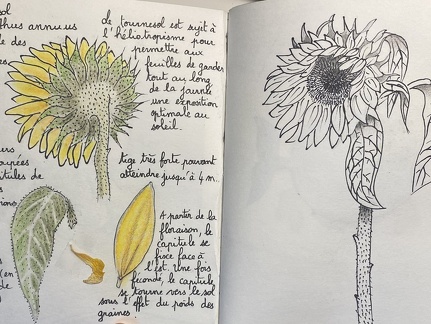 sol
thus annuus
le des
Le tournesol est sujet à
l'héliotropisme pour
permettre aux
feuilles de garder
tout au long
de la journée
une exposition
optimale au
soleil.
tige très forte pouvant
atteindre jusqu'à 4 m..
A partir de la
floraison, le
capitule se
fixe face à
l'est. Une fois
fécondé, le capitule
se tourne vers le sol
sous l'effet du poids des
graines